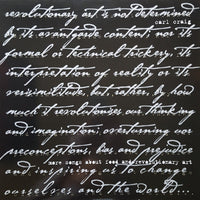 revolutionary art is not determined
carl craig
by its avantgarde content; nor its
formal or technical trickery, its
interpretation of reality or its
verisimilitude, but, rather, by how
much it revolutionises our thinking
and imagination; overturning our
preconceptions, bias and prejudice
more songs about food and revolutionary art
and inspiring us to change
ourselves and the world...